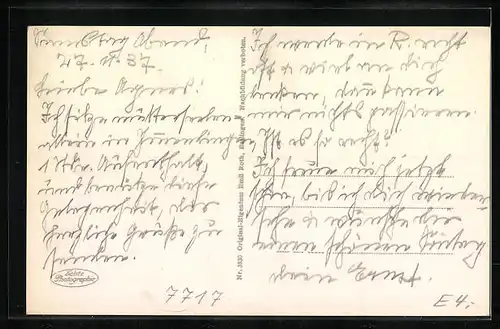 Samstag Abend!
27.11.37.
Liebe Agnes!
Ich sitze mutterseelen-
allein in Immendingen
1 Std. Aufenthalt,
und benütze diese
Gelegenheit, dir
herzliche Grüße zu
senden.
Ich werde in R. recht
oft u. viel an dich
denken, dass dann
mir nichts passieren.
Ist es so recht?
Ich freue mich jetzt
schon, bis ich dich wieder-
sehe u. wünsche dir
einen schönen Sonntag
dein Ernst.
Nr. 3530 Original-Eigentum Emil Roth, Nachbildung verboten.
Echte
Photographie
7717
E4,-